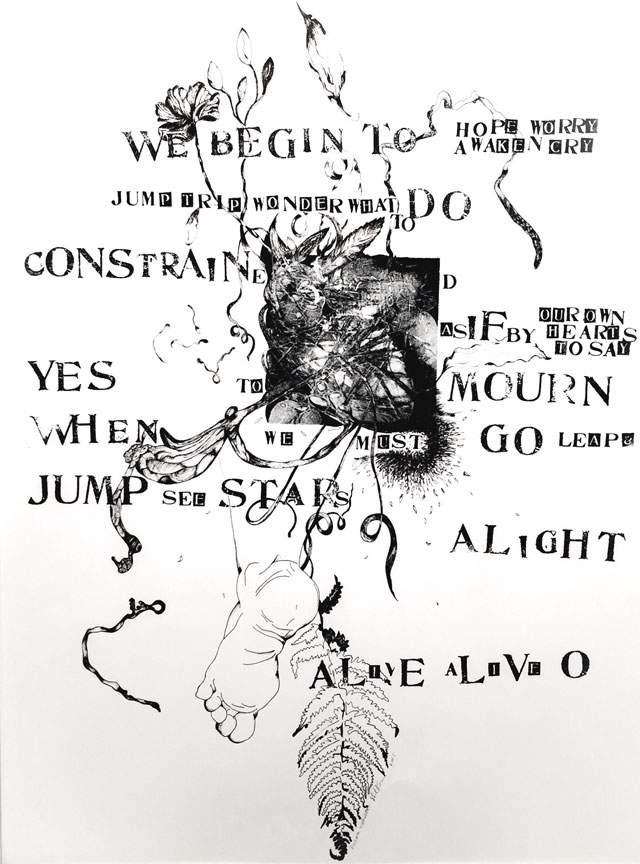 WE BEGIN TO HOPE WORRY
AWAKEN CRY
JUMP TRIP WONDER WHAT TO DO
CONSTRAINE D
AS IF BY OUR OWN
HEARTS
TO SAY
YES TO MOURN
WHEN WE MUST GO LEAP &
JUMP SEE STARS
ALIGHT
ALIVE ALIVE O